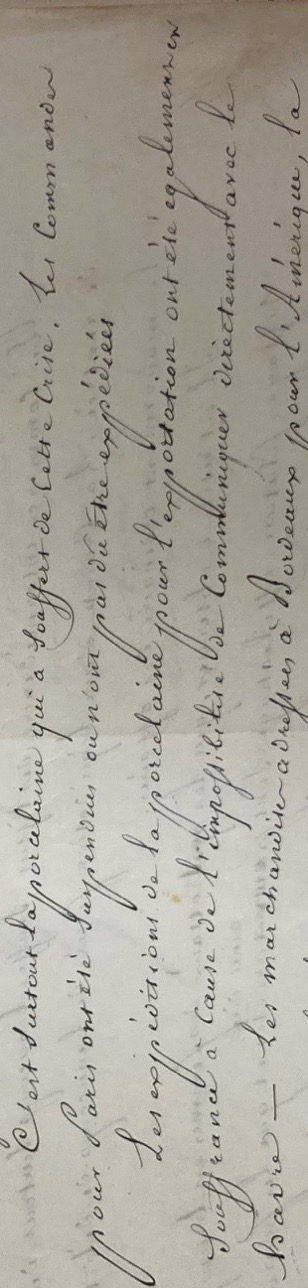 C'est surtout la porcelaine qui a souffert de cette crise. Les commandes
pour Paris ont été suspendues ou n'ont pas dû être expédiées
Les expéditions de la porcelaine pour l'exportation ont été également en
souffrance à cause de l'impossibilité de communiquer directement avec le
havre — Les marchandises adressées à Bordeaux pour l'Amérique, la